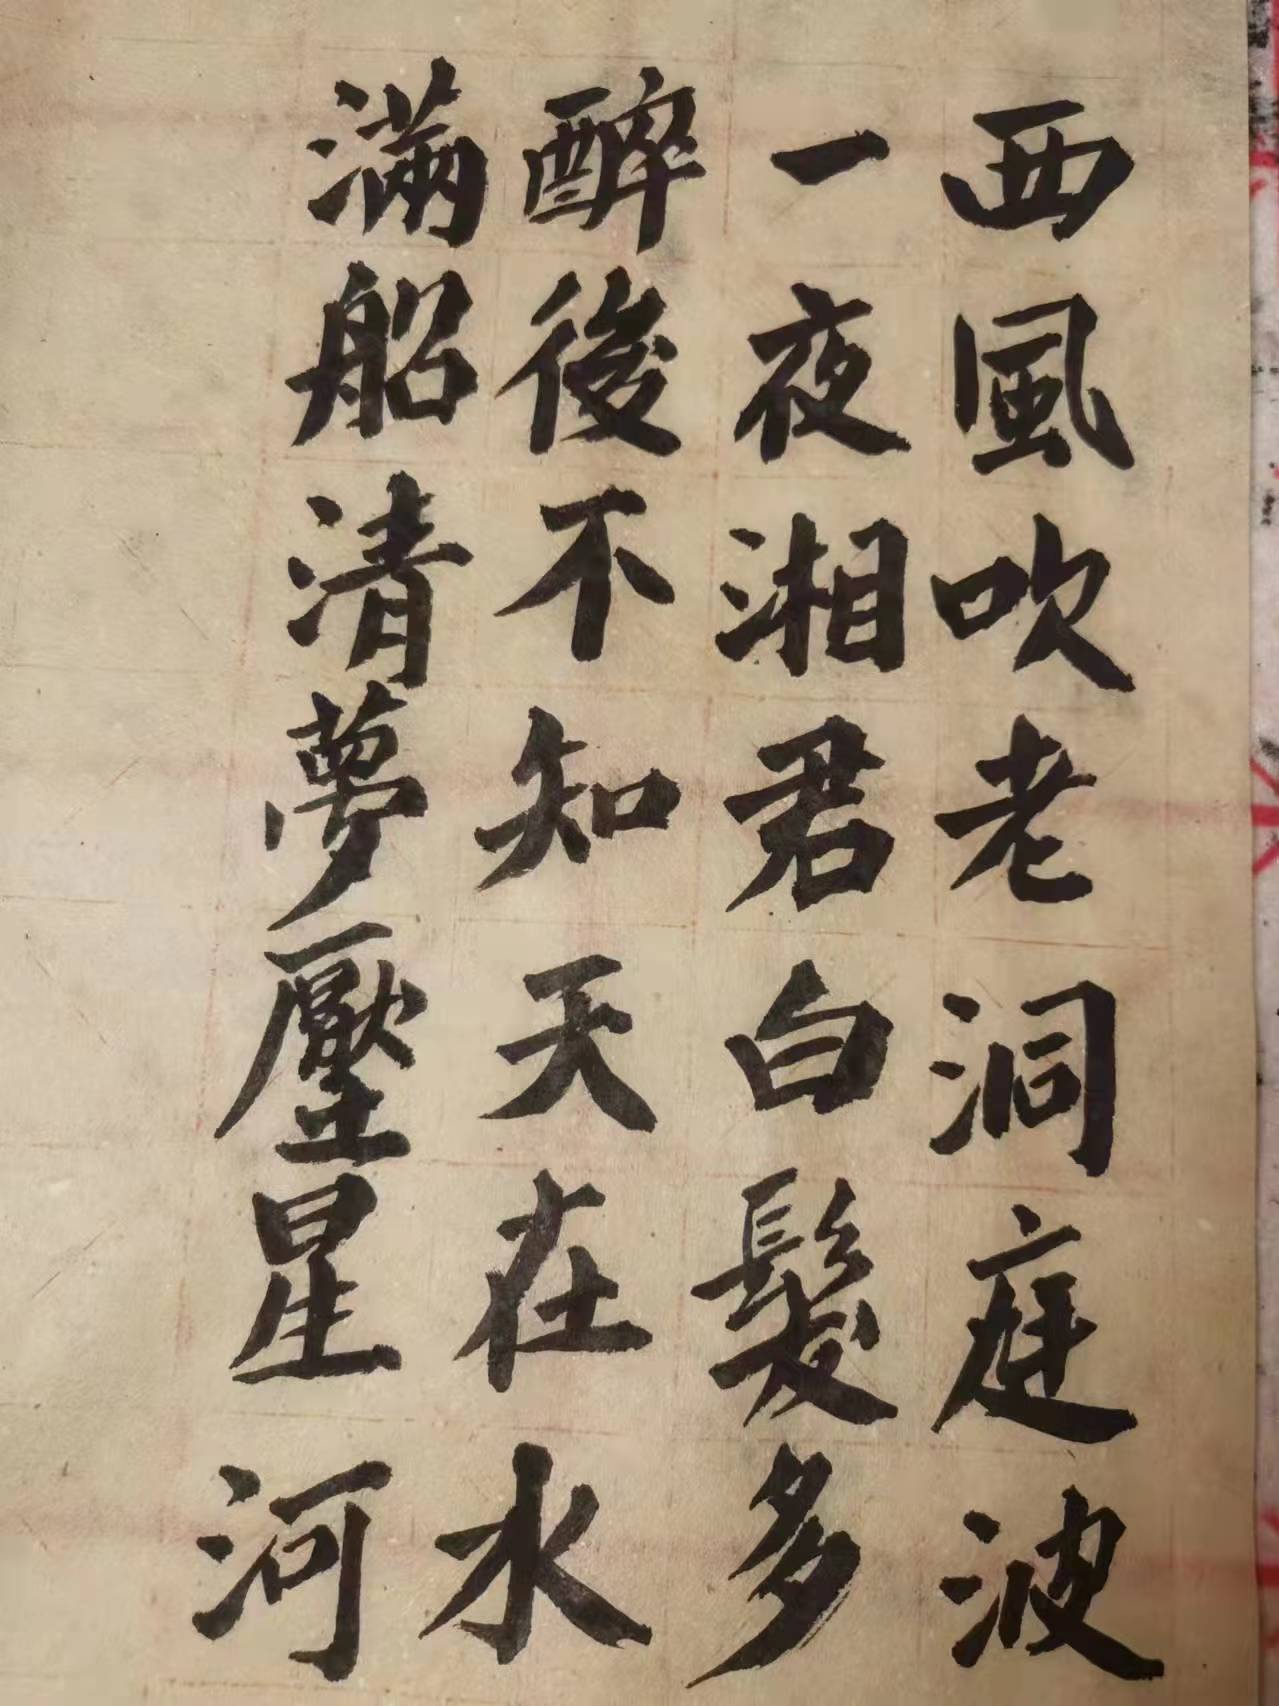 西風吹老洞庭波
一夜湘君白髮多
醉後不知天在水
滿船清夢壓星河